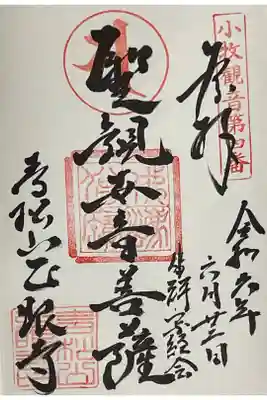 小牧觀音第四番
奉拝
令和六年
六月廿三日
坐禅写経会
聖観世音菩薩
青松山正眼寺